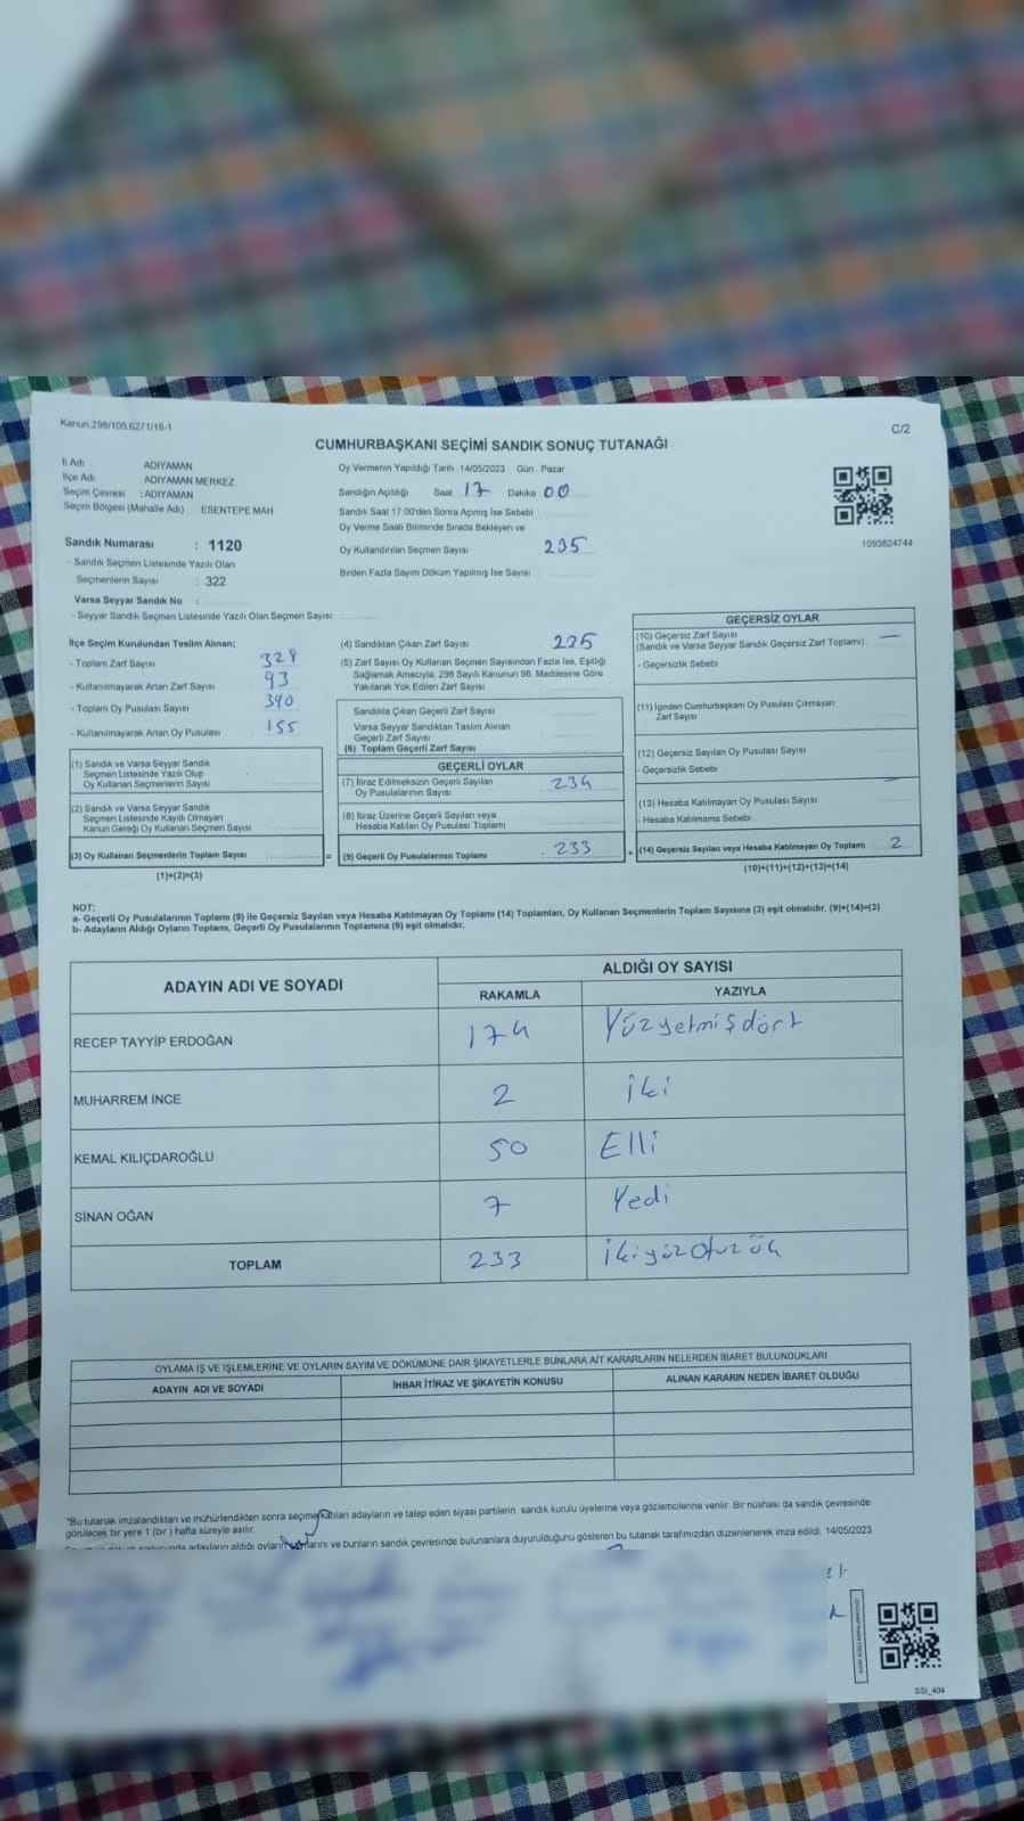 Kanun.298/105,62/1/16-1
C/2
CUMHURBAŞKANI SEÇİMİ SANDIK SONUÇ TUTANAĞI
İl Adı : ADIYAMAN
İlçe Adı : ADIYAMAN MERKEZ
Seçim Çevresi : ADIYAMAN
Seçim Bölgesi (Mahalle Adı) ESENTEPE MAH
Sandık Numarası : 1120
- Sandık Seçmen Listesinde Yazılı Olan
Seçmenlerin Sayısı : 322
Varsa Seyyar Sandık No :
- Seyyar Sandık Seçmen Listesinde Yazılı Olan Seçmen Sayısı:
Oy Vermenin Yapıldığı Tarih :14/05/2023 Gün : Pazar
Sandığın Açıldığı Saat 17 Dakika 00
Sandık Saat 17:00'den Sonra Açılmış İse Sebebi
Oy Verme Saati Bitiminde Sırada Bekleyen ve
Oy Kullandırılan Seçmen Sayısı 235
Birden Fazla Sayım Döküm Yapılmış İse Sayısı
1093824744
İlçe Seçim Kurulundan Teslim Alınan;
- Toplam Zarf Sayısı
- Kullanılmayarak Artan Zarf Sayısı 93
- Toplam Oy Pusulası Sayısı 390
- Kullanılmayarak Artan Oy Pusulası 155
(1) Sandık ve Varsa Seyyar Sandık
Seçmen Listesinde Yazılı Olup
Oy Kullanan Seçmenlerin Sayısı
(2) Sandık ve Varsa Seyyar Sandık
Seçmen Listesinde Kayıtlı Olmayan
Kanun Gereği Oy Kullanan Seçmen Sayısı
(3) Oy Kullanan Seçmenlerin Toplam Sayısı
(1)+(2)=(3)
(4) Sandıktan Çıkan Zarf Sayısı
(5) Zarf Sayısı Oy Kullanan Seçmen Sayısından Fazla İse, Eşitliği
Sağlamak Amacıyla, 298 Sayılı Kanunun 98. Maddesine Göre
Yakılarak Yok Edilen Zarf Sayısı
Sandıkta Çıkan Geçerli Zarf Sayısı
Varsa Seyyar Sandıktan Teslim Alınan
Geçerli Zarf Sayısı
(6) Toplam Geçerli Zarf Sayısı
GEÇERLİ OYLAR
(7) İtiraz Edilmeksizin Geçerli Sayılan
Oy Pusulalarının Sayısı 234
(8) İtiraz Üzerine Geçerli Sayılan veya
Hesaba Katılan Oy Pusulası Toplamı
= (9) Geçerli Oy Pusulalarının Toplamı 233
GEÇERSİZ OYLAR
(10) Geçersiz Zarf Sayısı —
(Sandık ve Varsa Seyyar Sandık Geçersiz Zarf Toplamı)
- Geçersizlik Sebebi
(11) İçinden Cumhurbaşkanı Oy Pusulası Çıkmayan
Zarf Sayısı
(12) Geçersiz Sayılan Oy Pusulası Sayısı
- Geçersizlik Sebebi
(13) Hesaba Katılmayan Oy Pusulası Sayısı
- Hesaba Katılmama Sebebi
+ (14) Geçersiz Sayılan veya Hesaba Katılmayan Oy Toplamı 2
(10)+(11)+(12)+(13)=(14)
NOT:
a- Geçerli Oy Pusulalarının Toplamı (9) ile Geçersiz Sayılan veya Hesaba Katılmayan Oy Toplamı (14) Toplamları, Oy Kullanan Seçmenlerin Toplam Sayısına (3) eşit olmalıdır. (9)+(14)=(3)
b- Adayların Aldığı Oyların Toplamı, Geçerli Oy Pusulalarının Toplamına (9) eşit olmalıdır.
ADAYIN ADI VE SOYADI
ALDIĞI OY SAYISI
RAKAMLA YAZIYLA
RECEP TAYYİP ERDOĞAN 174 Yüzyetmişdört
MUHARREM İNCE 2 iki
KEMAL KILIÇDAROĞLU 50 Elli
SİNAN OĞAN 7 Yedi
TOPLAM 233 ikiyüzotuzüç
OYLAMA İŞ VE İŞLEMLERİNE VE OYLARIN SAYIM VE DÖKÜMÜNE DAİR ŞİKAYETLERLE BUNLARA AİT KARARLARIN NELERDEN İBARET BULUNDUKLARI
ADAYIN ADI VE SOYADI İHBAR İTİRAZ VE ŞİKAYETİN KONUSU ALINAN KARARIN NEDEN İBARET OLDUĞU
*Bu tutanak imzalandıktan ve mühürlendikten sonra seçime katılan adayların ve talep eden siyasi partilerin, sandık kurulu üyelerine veya gözlemcilerine verilir. Bir nüshası da sandık çevresinde
görülecek bir yere 1 (bir) hafta süreyle asılır.
adayların aldığı oyların ve bunların sandık çevresinde bulunanlara duyurulduğunu gösteren bu tutanak tarafımızdan düzenlenerek imza edildi. 14/05/2023